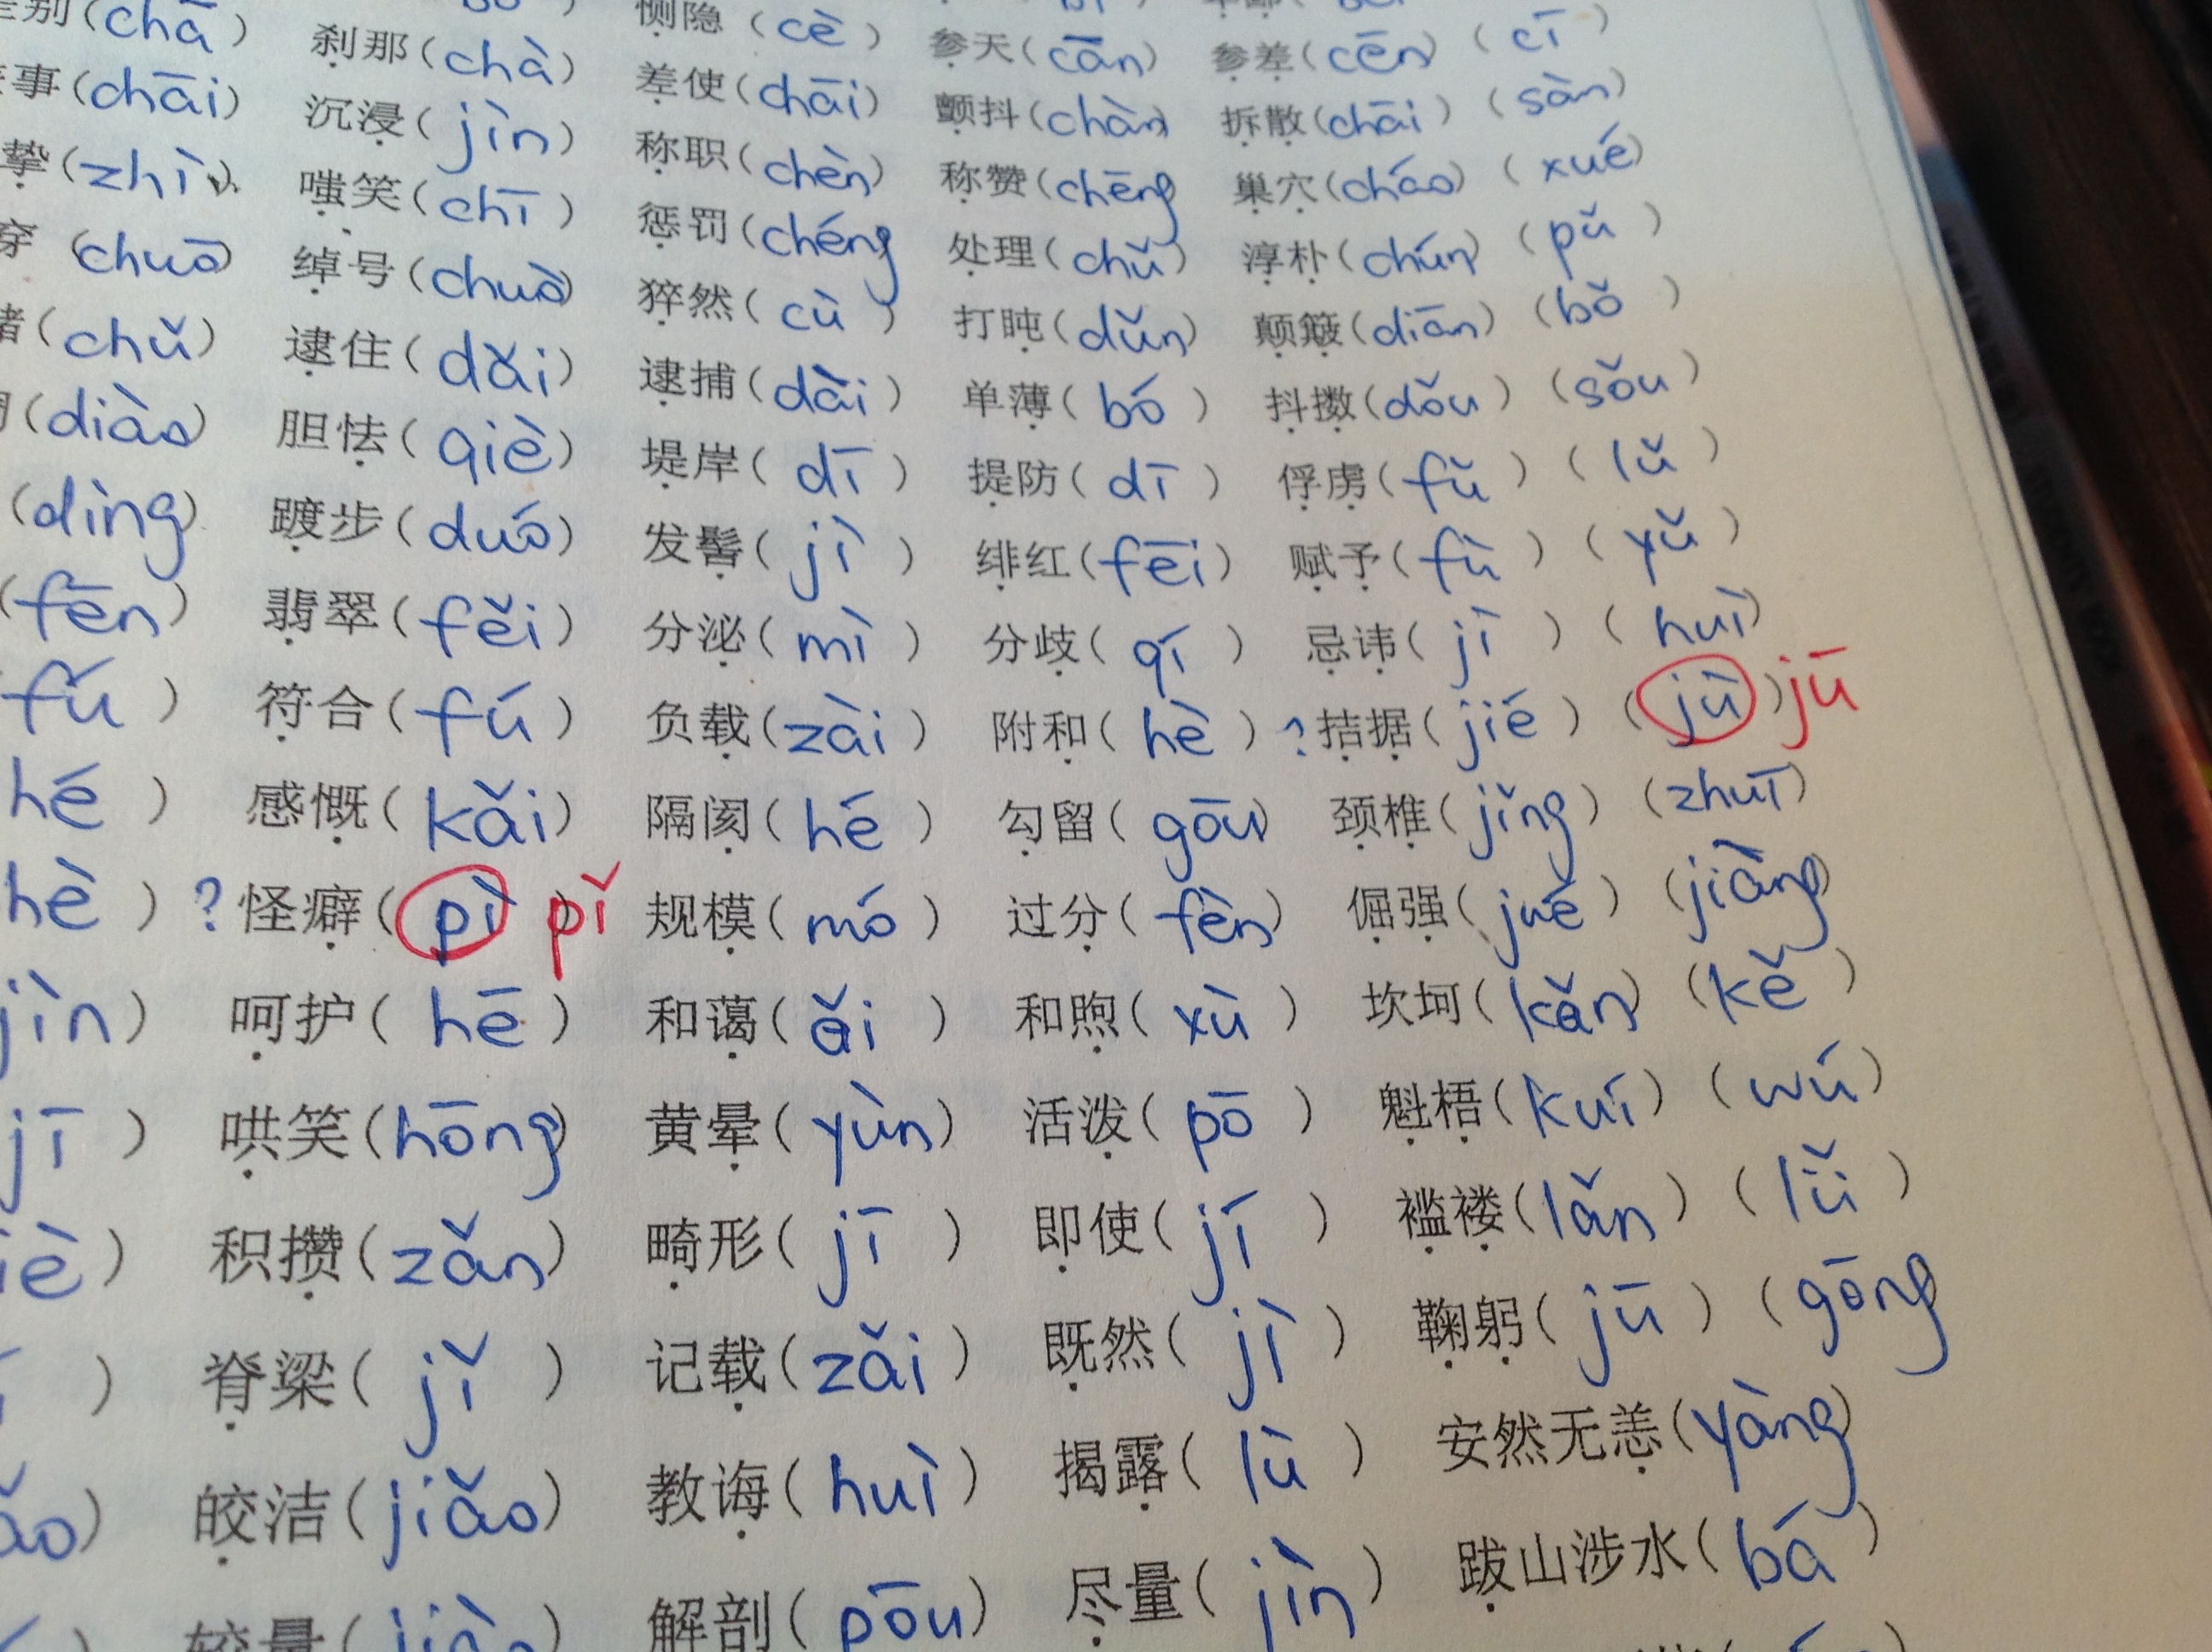 别(chā) 刹那(chà) 恻隐(cè) 参天(cān) 参差(cēn)(cī)
事(chāi) 沉浸(jìn) 差使(chāi) 颤抖(chàn) 拆散(chāi)(sàn)
挚(zhì) 嗤笑(chī) 称职(chèn) 称赞(chēng 巢穴(cháo)(xué)
穿(chuō) 绰号(chuò) 惩罚(chéng 处理(chǔ) 淳朴(chún)(pǔ)
(chǔ) 逮住(dǎi) 猝然(cù) 打盹(dǔn) 颠簸(diān)(bǒ)
(diào) 胆怯(qiè) 逮捕(dài) 单薄(bó) 抖擞(dǒu)(sǒu)
(dìng) 踱步(duó) 堤岸(dī) 提防(dī) 俘虏(fǔ)(lǔ)
(fēn) 翡翠(fěi) 发髻(jì) 绯红(fēi) 赋予(fù)(yǔ)
fú) 符合(fú) 分泌(mì) 分歧(qí) 忌讳(jì)(huì)
hé) 感慨(kǎi) 负载(zài) 附和(hè) ?拮据(jié)(jù)jū
hè) ?怪癖(pì pǐ 隔阂(hé) 勾留(gōu) 颈椎(jǐng)(zhuī)
jìn) 呵护(hē) 规模(mó) 过分(fèn) 倔强(jué)(jiàng)
jī) 哄笑(hōng) 和蔼(ǎi) 和煦(xù) 坎坷(kǎn)(kě)
iè) 积攒(zǎn) 黄晕(yùn) 活泼(pō) 魁梧(kuí)(wú)
) 脊梁(jǐ) 畸形(jī) 即使(jí) 褴褛(lǎn)(lǚ)
ǎo) 皎洁(jiǎo) 记载(zǎi) 既然(jì) 鞠躬(jū)(gōng
较量(jiào) 教诲(huì) 揭露(lù) 安然无恙(yàng)
解剖(pōu) 尽量(jìn) 跋山涉水(bá)